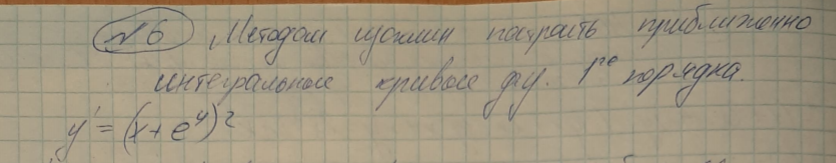 №6 Методом изоклин построить приближенно
интегральные кривые д.у. 1го порядка.
y' = (x + e^y)^2